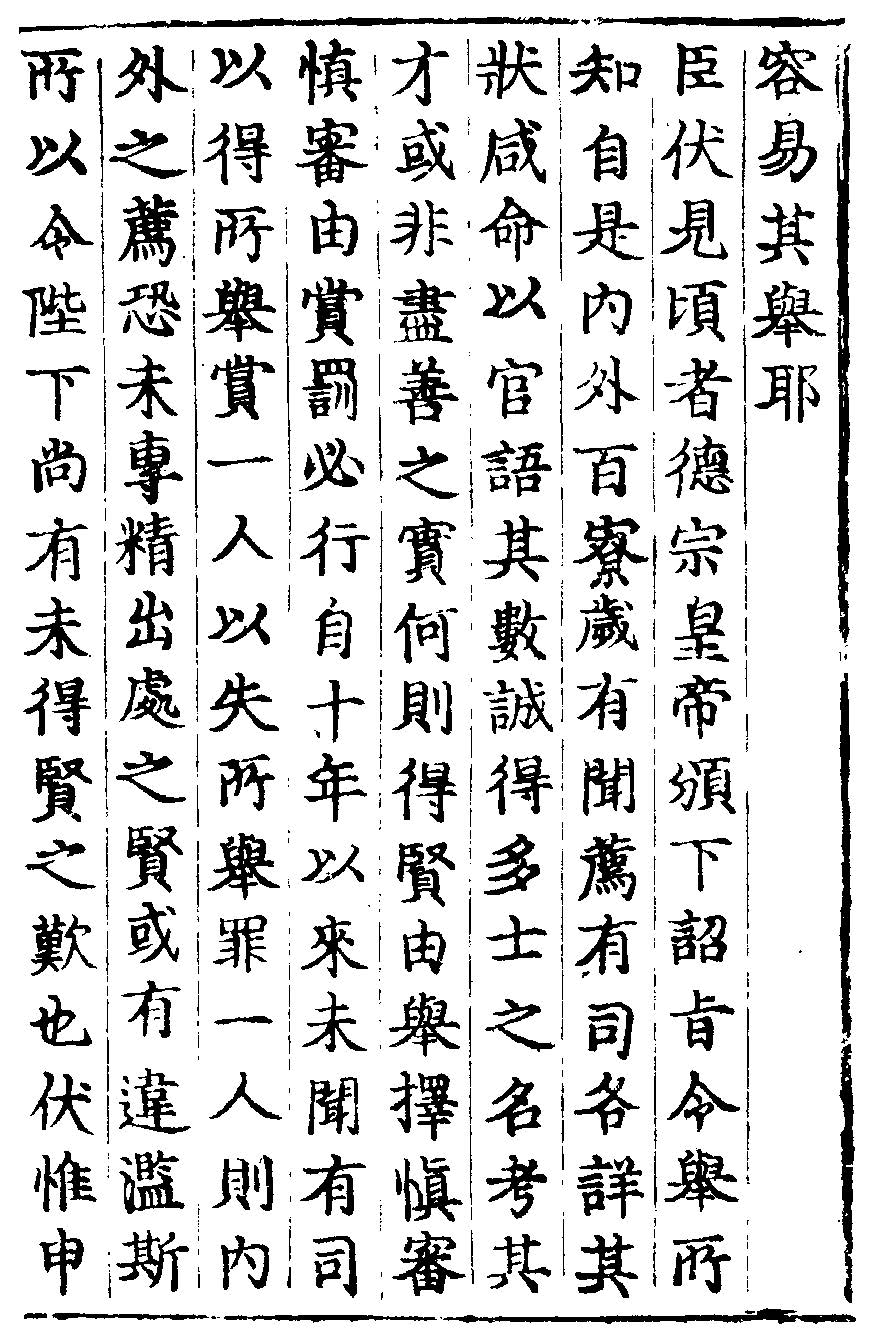 容易其舉耶
臣伏見頃者德宗皇帝頒下詔旨令舉所
知自是内外百寮歲有聞薦有司各詳其
狀咸命以官語其數誠得多士之名考其
才或非盡善之實何則得賢由舉擇慎審
慎審由賞罰必行自十年以來未聞有司
以得所舉賞一人以失所舉罪一人則内
外之薦恐未專精出處之賢或有違濫斯
所以令陛下尚有未得賢之歎也伏惟申